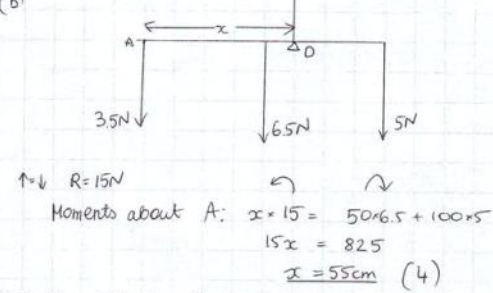 (b)
x
A
D
3.5N
6.5N
5N
↑=↓ R=15N
Moments about A: x × 15 = 50×6.5 + 100×5
15x = 825
x = 55cm (4)